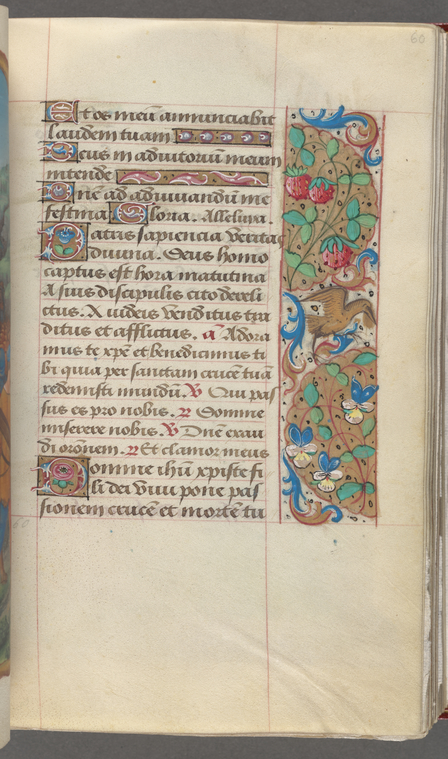 60
Et os meū annunciabit
laudem tuam
Deus in adiutoriū meum
intende
Dn̄e ad adiuuandū me
festina Gloria. Alleluia.
Patris sapiencia veritas
diuina. Deus homo
captus est hora matutina
A suis discipulis cito dereli
ctus. A iudeis venditus tra
ditus et afflictus. a᷑ Adora
mus te xp̄e et benedicimus ti
bi quia per sanctam crucē tuā
redemisti mundū. ℣ Qui pas
sus es pro nobis. ℟ Domine
miserere nobis. ℣ Dn̄e exau
di orōnem. ℟ Et clamor meus
Domine ihū xpiste fi
li dei viui pone pas
sionem crucē et mortē tu
60